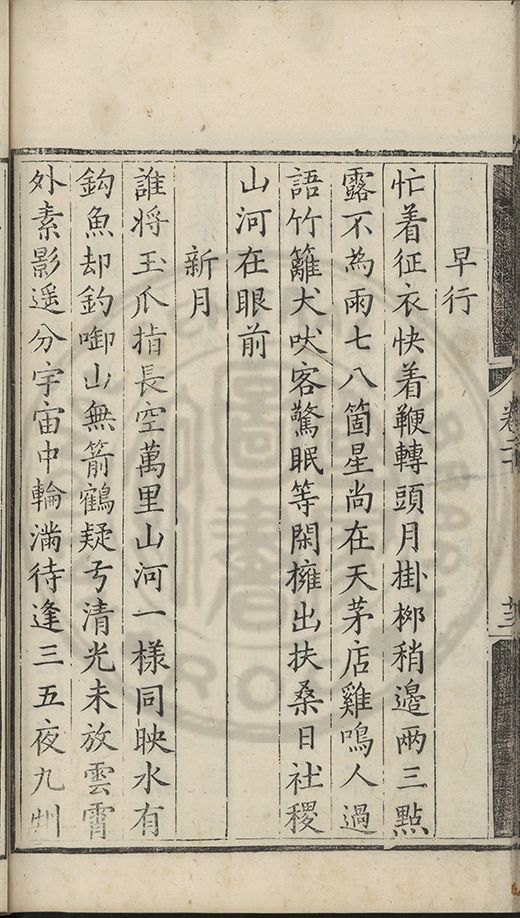 早行
忙着征衣快着鞭轉頭月掛桞稍邊兩三點
露不為雨七八箇星尚在天茅店雞鳴人過
語竹籬犬吠客驚眠等閑擁出扶桑日社稷
山河在眼前
新月
誰将玉爪掐長空萬里山河一樣同映水有
鈎魚却釣啣山無箭鶴疑弓清光未放雲霄
外素影遥分宇宙中輪滿待逢三五夜九州